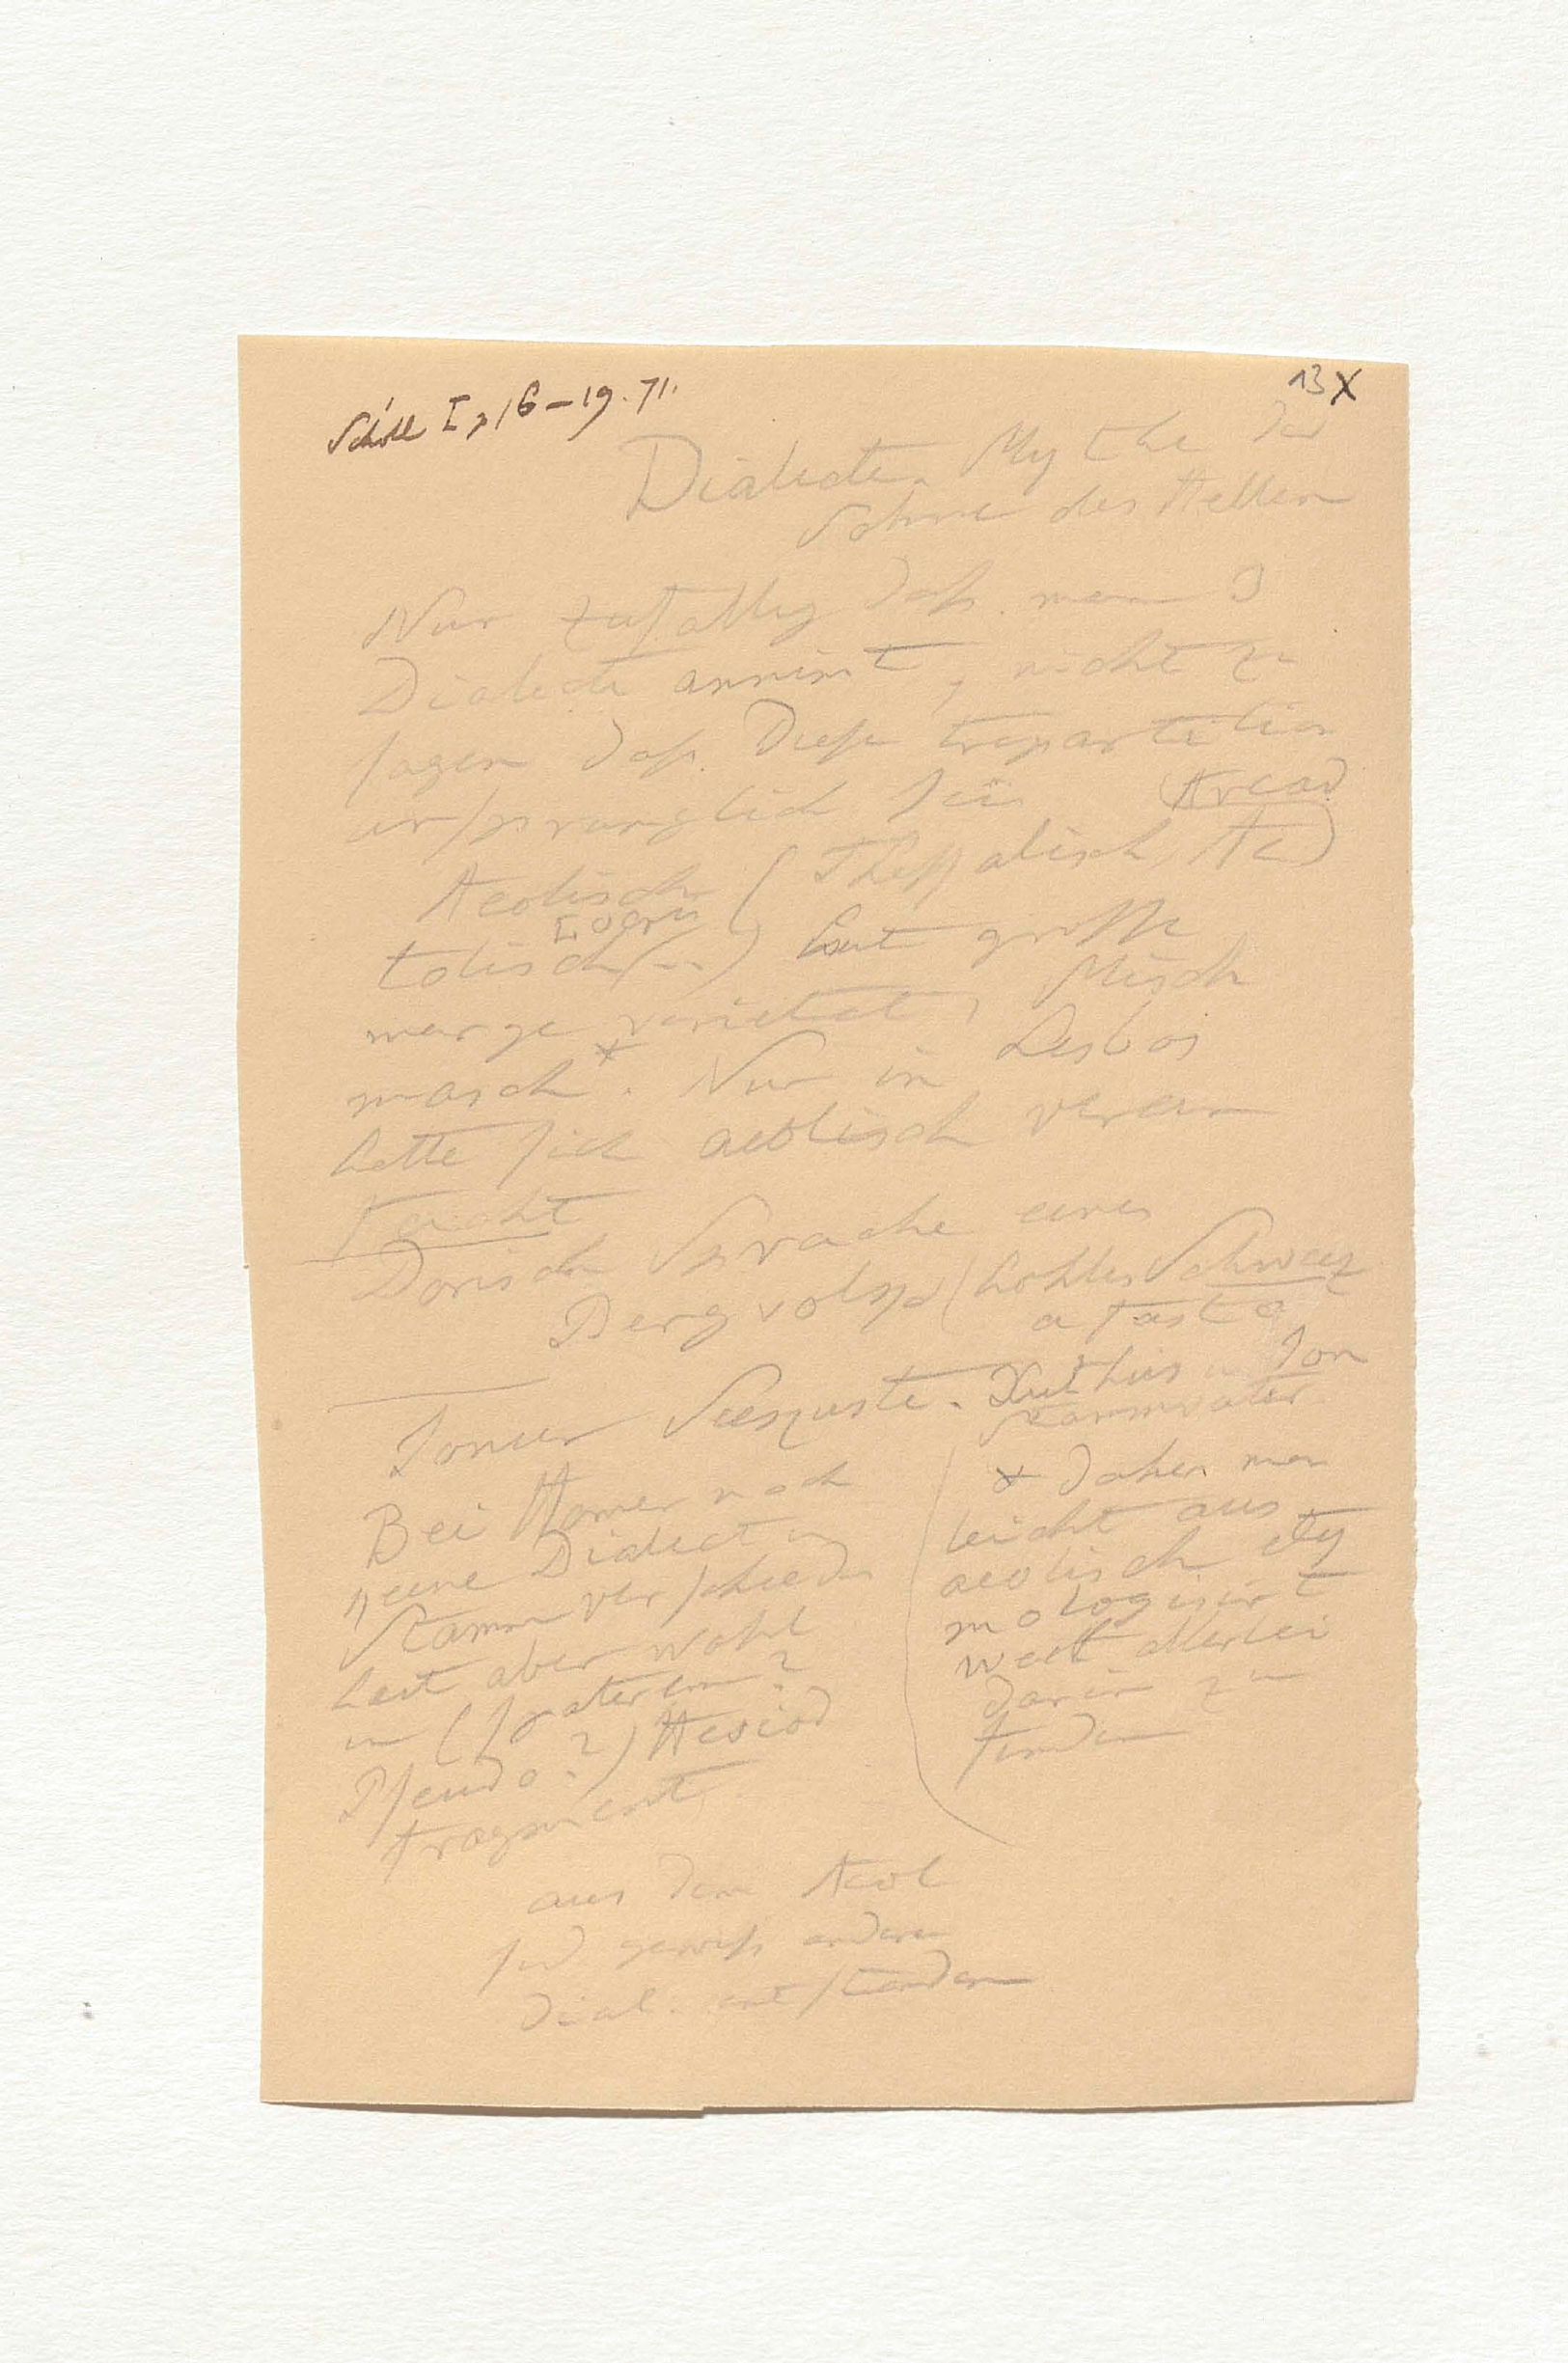 Schöll I, 16–19. 71.
13 X
Dialecte. Mythe der
Sohne des Hellen
Nur zufallig daß man 3
Dialecte annimt, nicht zu
sagen daß diese tripartition
ursprunglich sei
Aeolisch (Thessalisch, Arcad
Ae
Locris
tolisch --) hat grosse
menge varietat, Misch
masch*. Nur in Lesbos
hatte sich aeolisch verein
facht
Dorisch Sprache eines
Bergvolks (hohler Schweiz
Ionier Seeküste. Xuthus u Ion
Stammvater
Bei Homer noch
keine Dialect u
Stamm verschieden
heit aber wohl
in (spaterem?
Pseudo?) Hesiod
fragment
* daher man
leicht aus
aeolisch ety
mologisirt
weil allerlei
darin zu
finden
aus dem Aeol
sind gewiß andere
Dial. entstanden